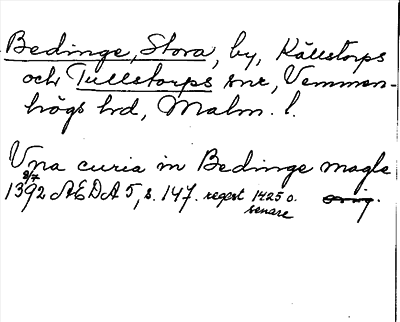 Bedinge, Stora, by, Källstorps
och Tullstorps snr, Vemmen-
högs hrd, Malm. l.
Vna curia in Bedinge magle
8/7
1392 ÆDA 5, s. 147. regest 1425 o. orig.
senare